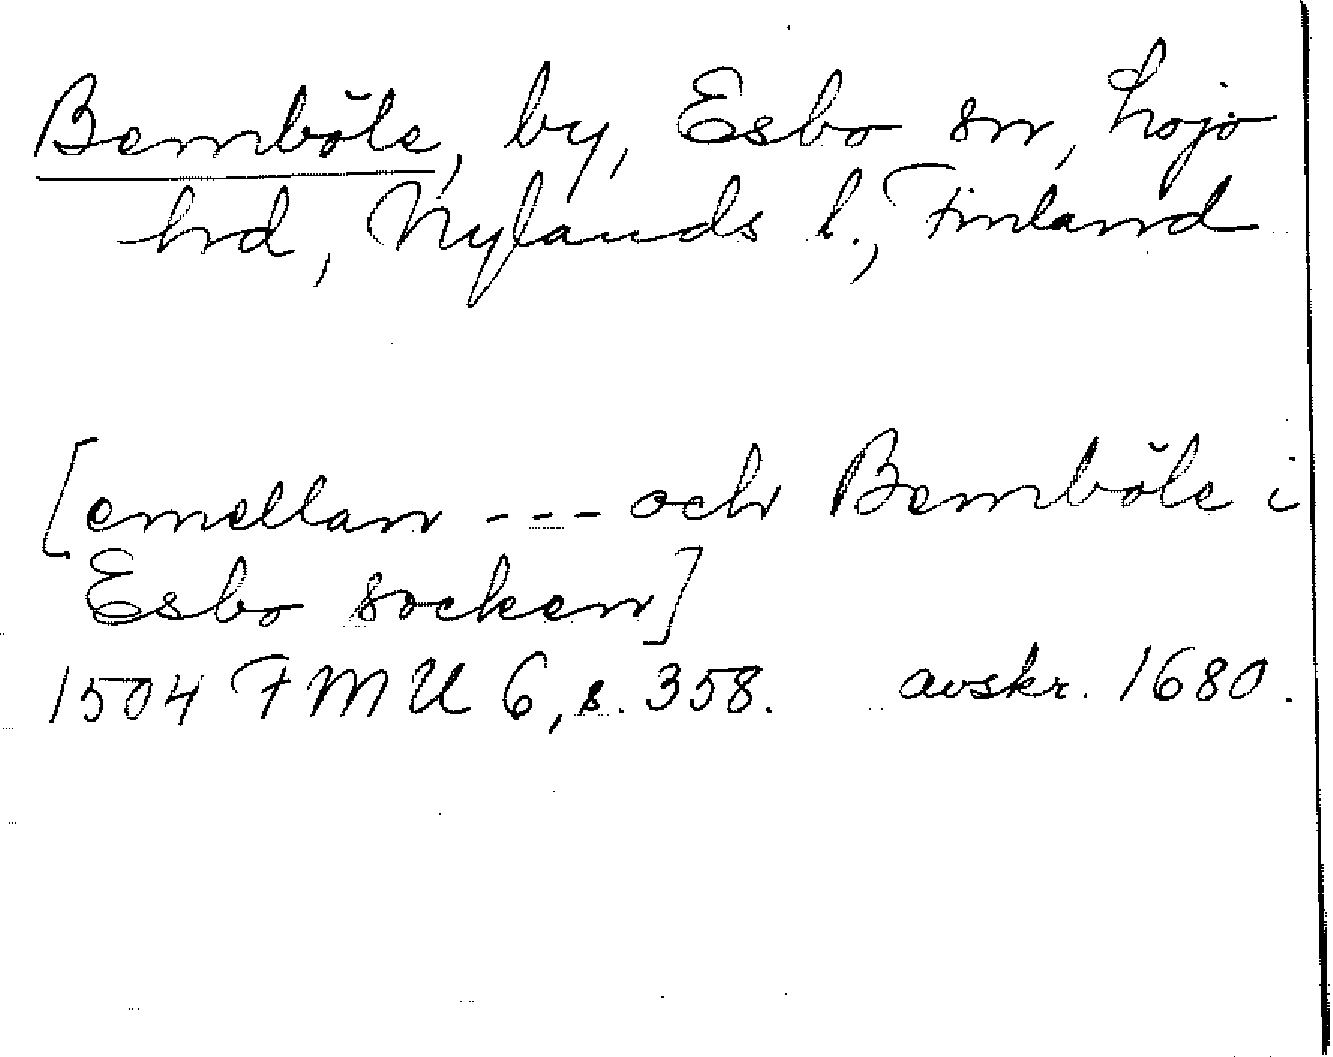 Bemböle, by, Esbo sn, Lojo
hd, Nylands l., Finland
[emellan --- och Bemböle i
Esbo socken]
1504 FMU 6, s. 358. avskr. 1680.